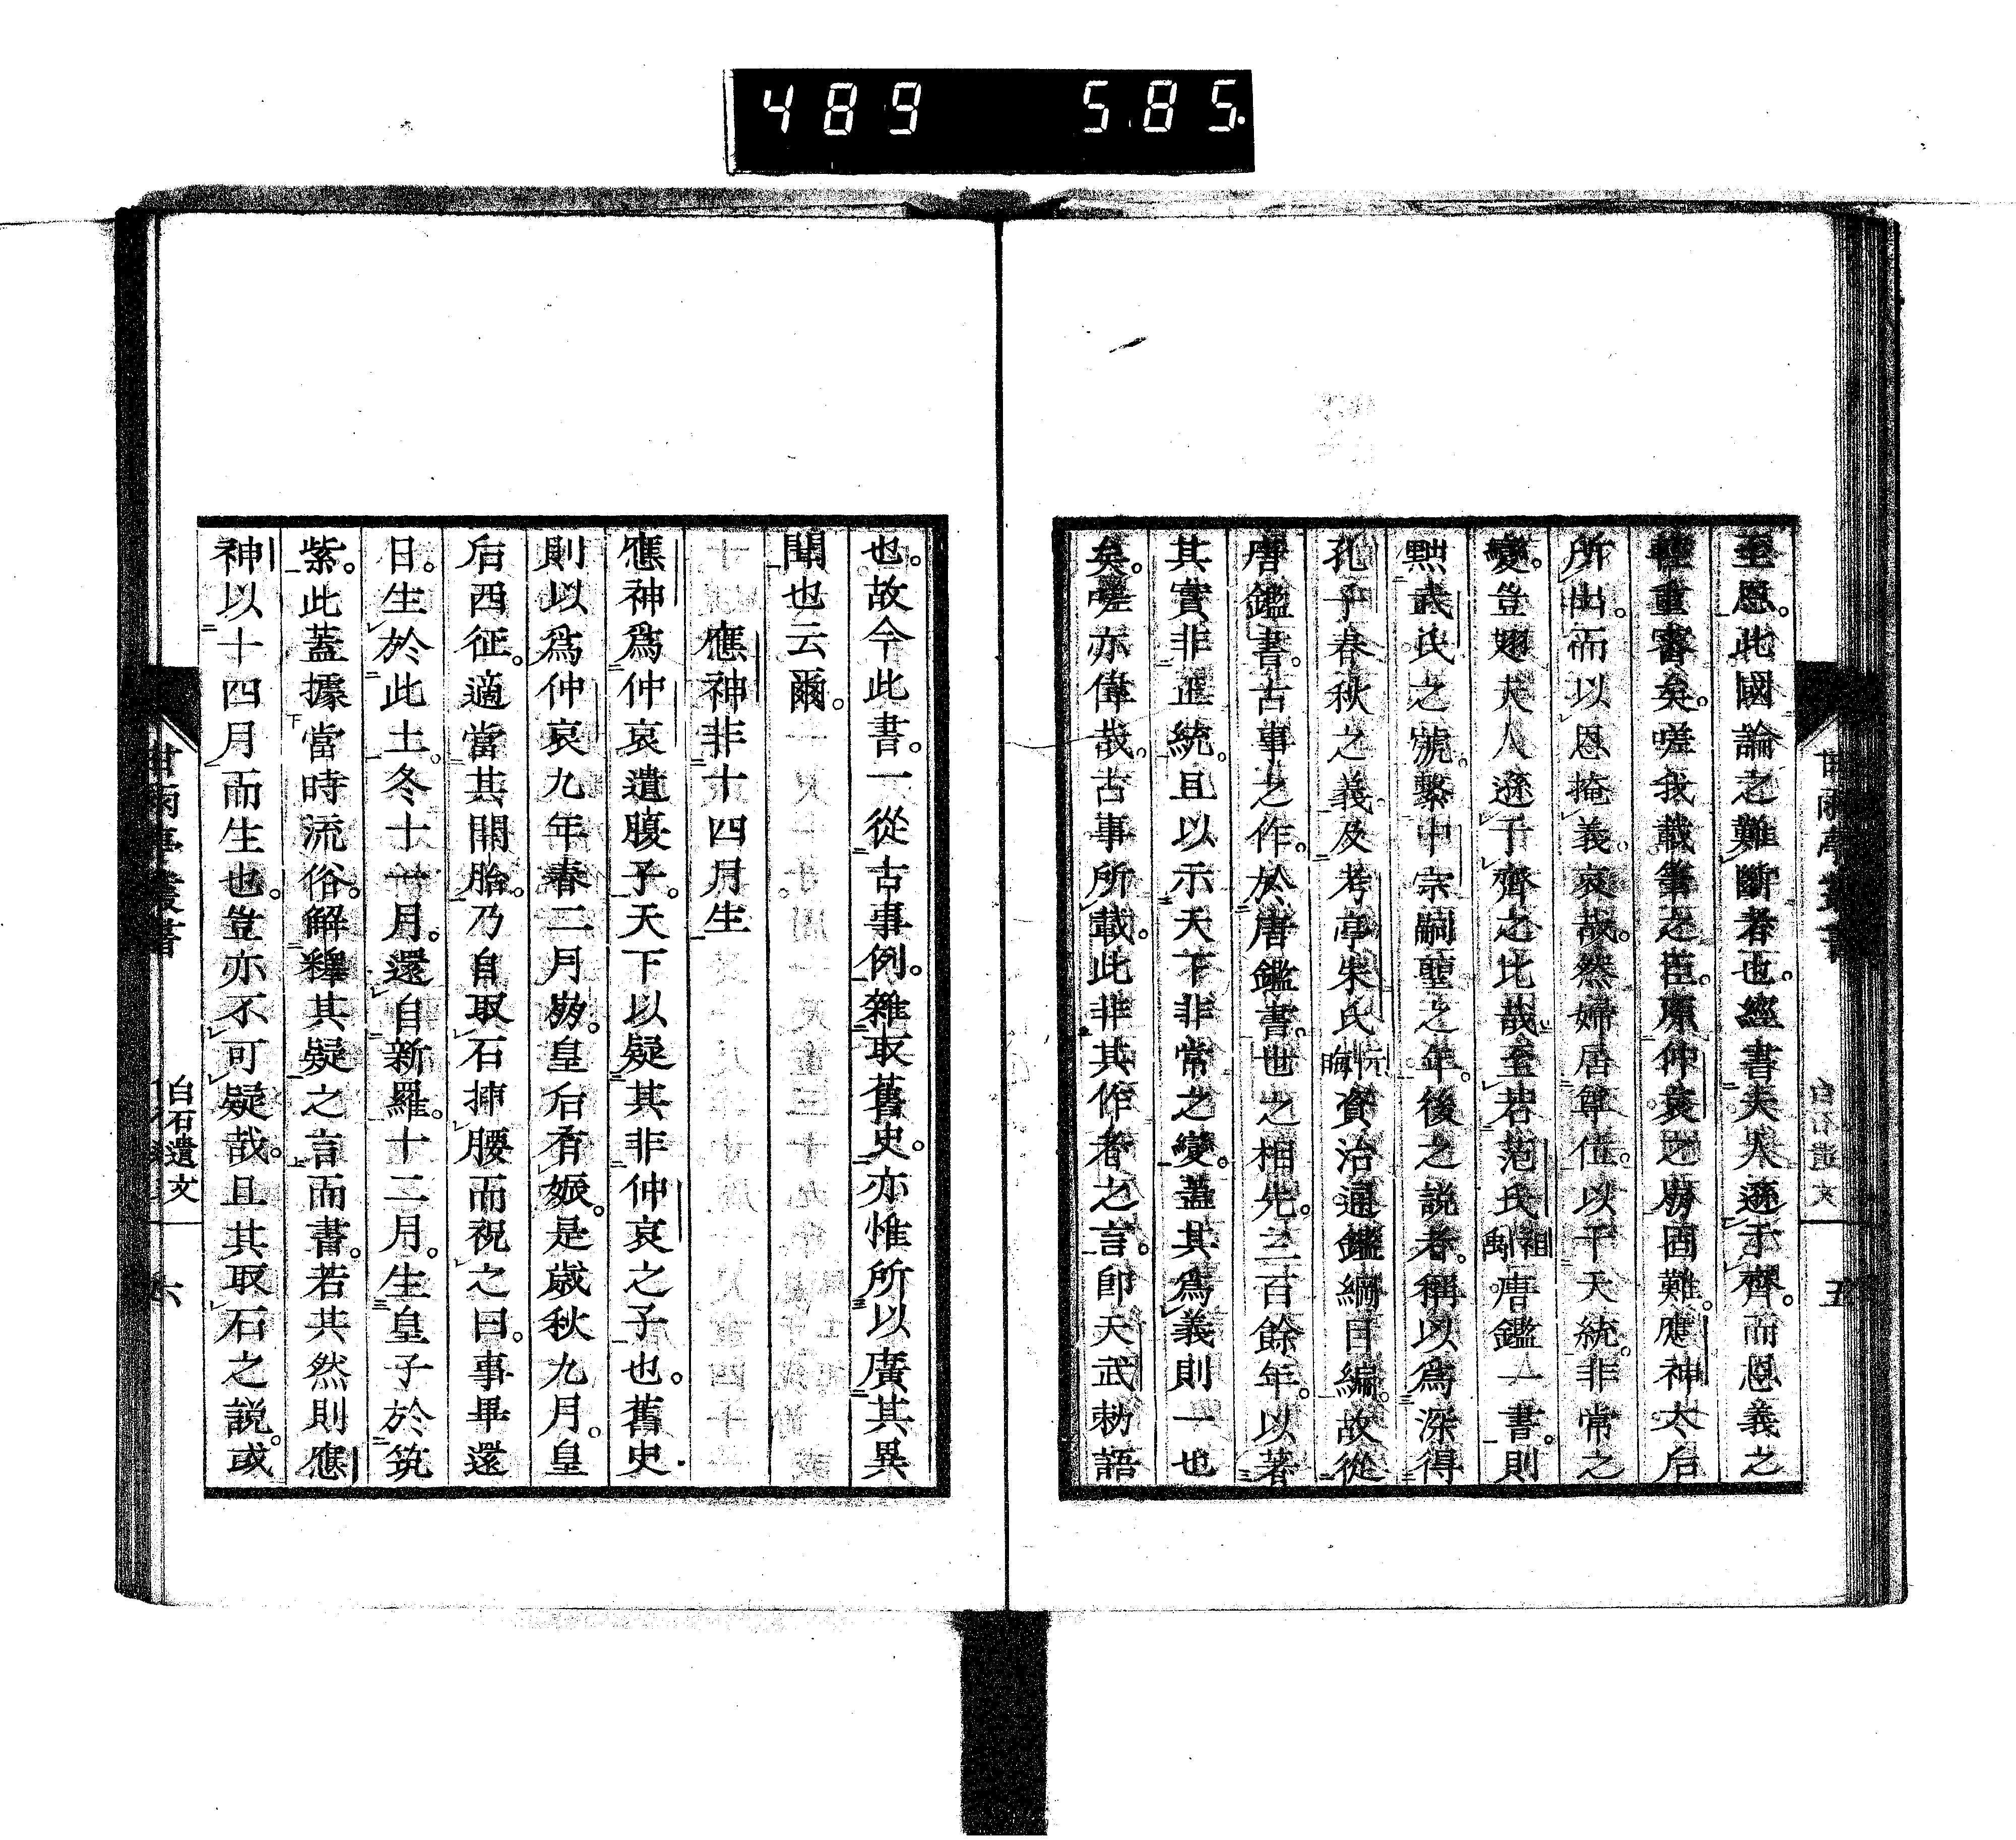 489 585.
甘雨亭叢書
白石遺文
五
至恩。此國論之難斷者也。經書夫人遜于齊。而恩義之
輕重審矣。嗟我載筆之臣。原仲哀之崩固難。應神太后
所出。而以恩掩義。哀哉。然婦居尊位。以干天統。非常之
變。豈翅夫人遜于齊之比哉。至若范氏祖禹。唐鑑一書。則
黜武氏之號。繫中宗嗣聖之年。後之説者。稱以爲深得
孔子春秋之義。及考亭朱氏元晦。資治通鑑綱目編。故從
唐鑑書。古事之作。於唐鑑書。世之相先。三百餘年。以著
其實非正統。且以示天下非常之變。蓋其爲義則一也
矣。嗟亦偉哉。古事所載。此非其作者之言。即天武勅語
也。故今此書。一從古事例。雜取舊史。亦惟所以廣其異
聞也云爾。
應神非十四月生
應神爲仲哀遺腹子。天下以疑其非仲哀之子也。舊史
則以爲仲哀九年春二月崩。皇后有娠。是歳秋九月。皇
后西征。適當其開胎。乃自取石挿腰而祝之曰。事畢還
日。生於此土。冬十一月。還自新羅。十二月。生皇子於筑
紫。此蓋據當時流俗。解釋其疑之言而書。若其然則應
神以十四月而生也。豈亦不可疑哉。且其取石之説。或
甘雨亭叢書
白石遺文
六